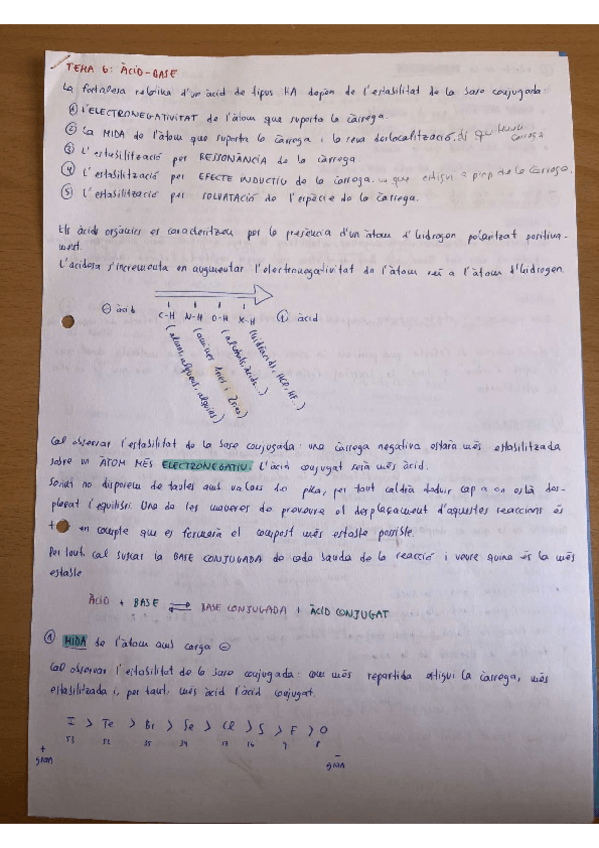 TEMA 6: ÀCID-BASE
La fortalesa relativa d'un àcid de tipus HA depèn de l'estabilitat de la base conjugada:
① L'ELECTRONEGATIVITAT de l'àtom que suporta la càrrega.
② La MIDA de l'àtom que suporta la càrrega i la seva deslocalització.
③ L'estabilització per RESSONÀNCIA de la càrrega
④ L'estabilització per EFECTE INDUCTIU de la càrrega. que estigui a prop de la càrrega.
⑤ L'estabilització per SOLVATACIÓ de l'espècie de la càrrega.
Els àcids orgànics es caracteritzen per la presència d'un àtom d'hidrogen polaritzat positiva-
ment.
L'acidesa s'incrementa en augmentar l'electronegativitat de l'àtom unit a l'àtom d'hidrogen.
⊖ àcid C-H N-H O-H X-H ⊕ àcid
(alcans, alquens, alquins)
(amines 1àries i 2àries)
(alcohols, àcids...)
(hidràcids, HCl, HF...)
Cal observar l'estabilitat de la base conjugada: una càrrega negativa estarà més estabilitzada
sobre un ÀTOM MÉS ELECTRONEGATIU. L'àcid conjugat serà més àcid.
Sovint no disposem de taules amb valors de pKa, per tant caldrà deduir cap a on està des-
plaçat l'equilibri. Una de les maneres de preveure el desplaçament d'aquestes reaccions és
en compte que es formarà el compost més estable possible.
Per tant, cal buscar la BASE CONJUGADA de cada banda de la reacció i veure quina és la més
estable
ÀCID + BASE ⇌ BASE CONJUGADA + ÀCID CONJUGAT
① MIDA de l'àtom amb carga ⊖
Cal observar l'estabilitat de la base conjugada: com més repartida estigui la càrrega, més
estabilitzada i, per tant, més àcid l'àcid conjugat.
I > Te > Br > Se > Cl > S > F > O
53 52 35 34 17 16 9 8
+ gran − gran